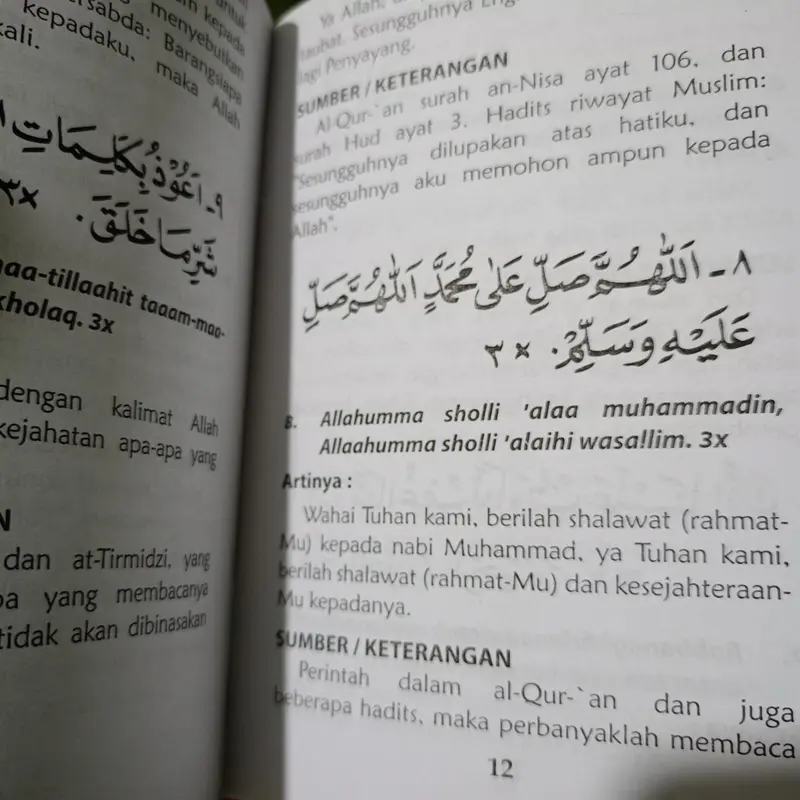 Ya Allah,
taubat. Sesungguhnya
lagi Penyayang.
SUMBER / KETERANGAN
Al-Qur-`an surah an-Nisa ayat 106, dan
surah Hud ayat 3. Hadits riwayat Muslim:
"Sesungguhnya dilupakan atas hatiku, dan
sesungguhnya aku memohon ampun kepada
Allah".
٨ - اَللّٰهُمَّ صَلِّ عَلٰى مُحَمَّدٍ اَللّٰهُمَّ صَلِّ
عَلَيْهِ وَسَلِّمْ. × ٣
8. Allahumma sholli 'alaa muhammadin,
Allaahumma sholli 'alaihi wasallim. 3x
Artinya :
Wahai Tuhan kami, berilah shalawat (rahmat-
Mu) kepada nabi Muhammad, ya Tuhan kami,
berilah shalawat (rahmat-Mu) dan kesejahteraan-
Mu kepadanya.
SUMBER / KETERANGAN
Perintah dalam al-Qur-`an dan juga
beberapa hadits, maka perbanyaklah membaca
12
kepada
menyebutkan
bersabda: Barangsiapa
kepadaku, maka Allah
kali.
٩ - اَعُوْذُ بِكَلِمَاتِ
شَرِّ مَا خَلَقَ. × ٣
maa-tillaahit taaam-maa-
kholaq. 3x
dengan kalimat Allah
kejahatan apa-apa yang
dan at-Tirmidzi, yang
yang membacanya
tidak akan dibinasakan